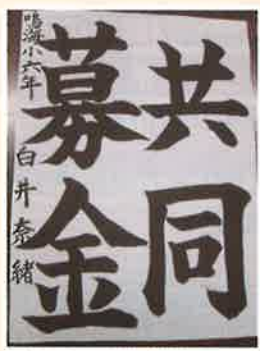 共同
募金
鳴海小六年
白井奈緒